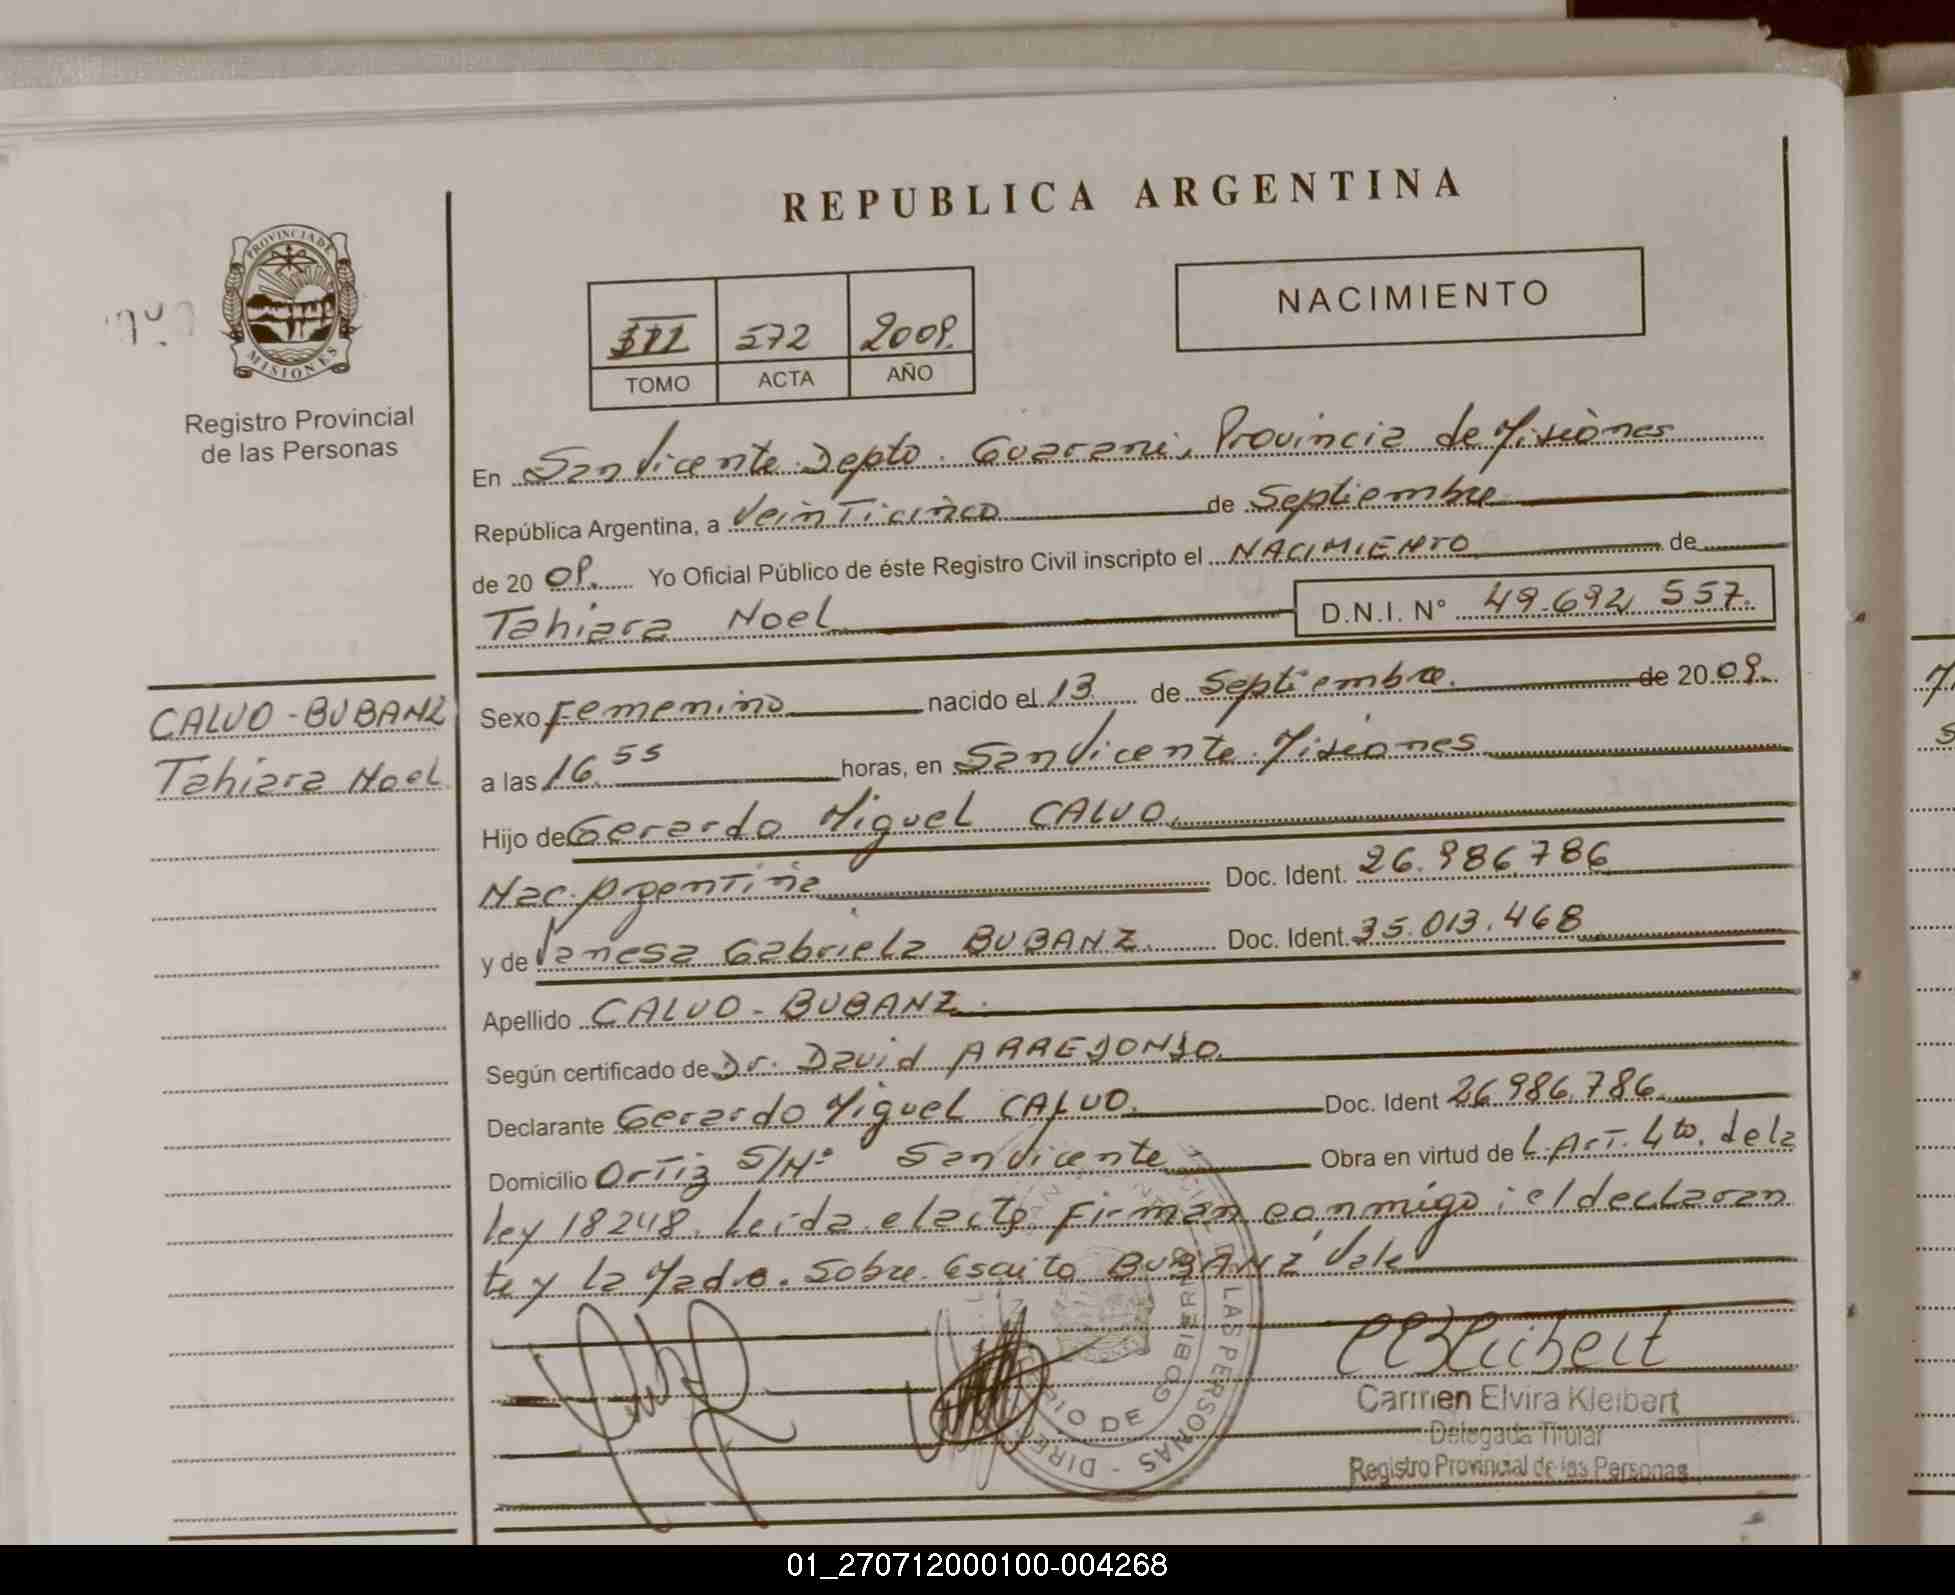 REPUBLICA ARGENTINA
PROVINCIA DE
MISIONES
Registro Provincial
de las Personas
NACIMIENTO
572 2009.
TOMO ACTA AÑO
En San Vicente Depto. Guarani, Provincia de Misiones
República Argentina, a Veinticinco de Septiembre
de 20 09. Yo Oficial Público de éste Registro Civil inscripto el NACIMIENTO de
Tahiara Noel D.N.I. N° 49.692 557.
CALVO-BUBANZ
Tahiara Noel
Sexo Femenino nacido el 13 de Septiembre. de 20 09.
a las 16 55 horas, en San Vicente. Misiones
Hijo de Gerardo Miguel CALVO.
Nac. Argentina Doc. Ident. 26.986.786
y de Vanesa Gabriela BUBANZ Doc. Ident. 35.013.468
Apellido CALVO-BUBANZ.
Según certificado de Dr. David ARREDONDO
Declarante Gerardo Miguel CALVO. Doc. Ident 26.986.786.
Domicilio Ortiz S/N° San Vicente Obra en virtud de L. Art. 4to. de la
ley 18248. Leida el acto firman conmigo: el declaran
te y la Madre. Sobre Escrito BUBANZ Vale
LAS PERSONAS - DIREC
DE GOBIERNO
Carmen Elvira Kleibert
Delegada Titular
Registro Provincial de las Personas
01_270712000100-004268